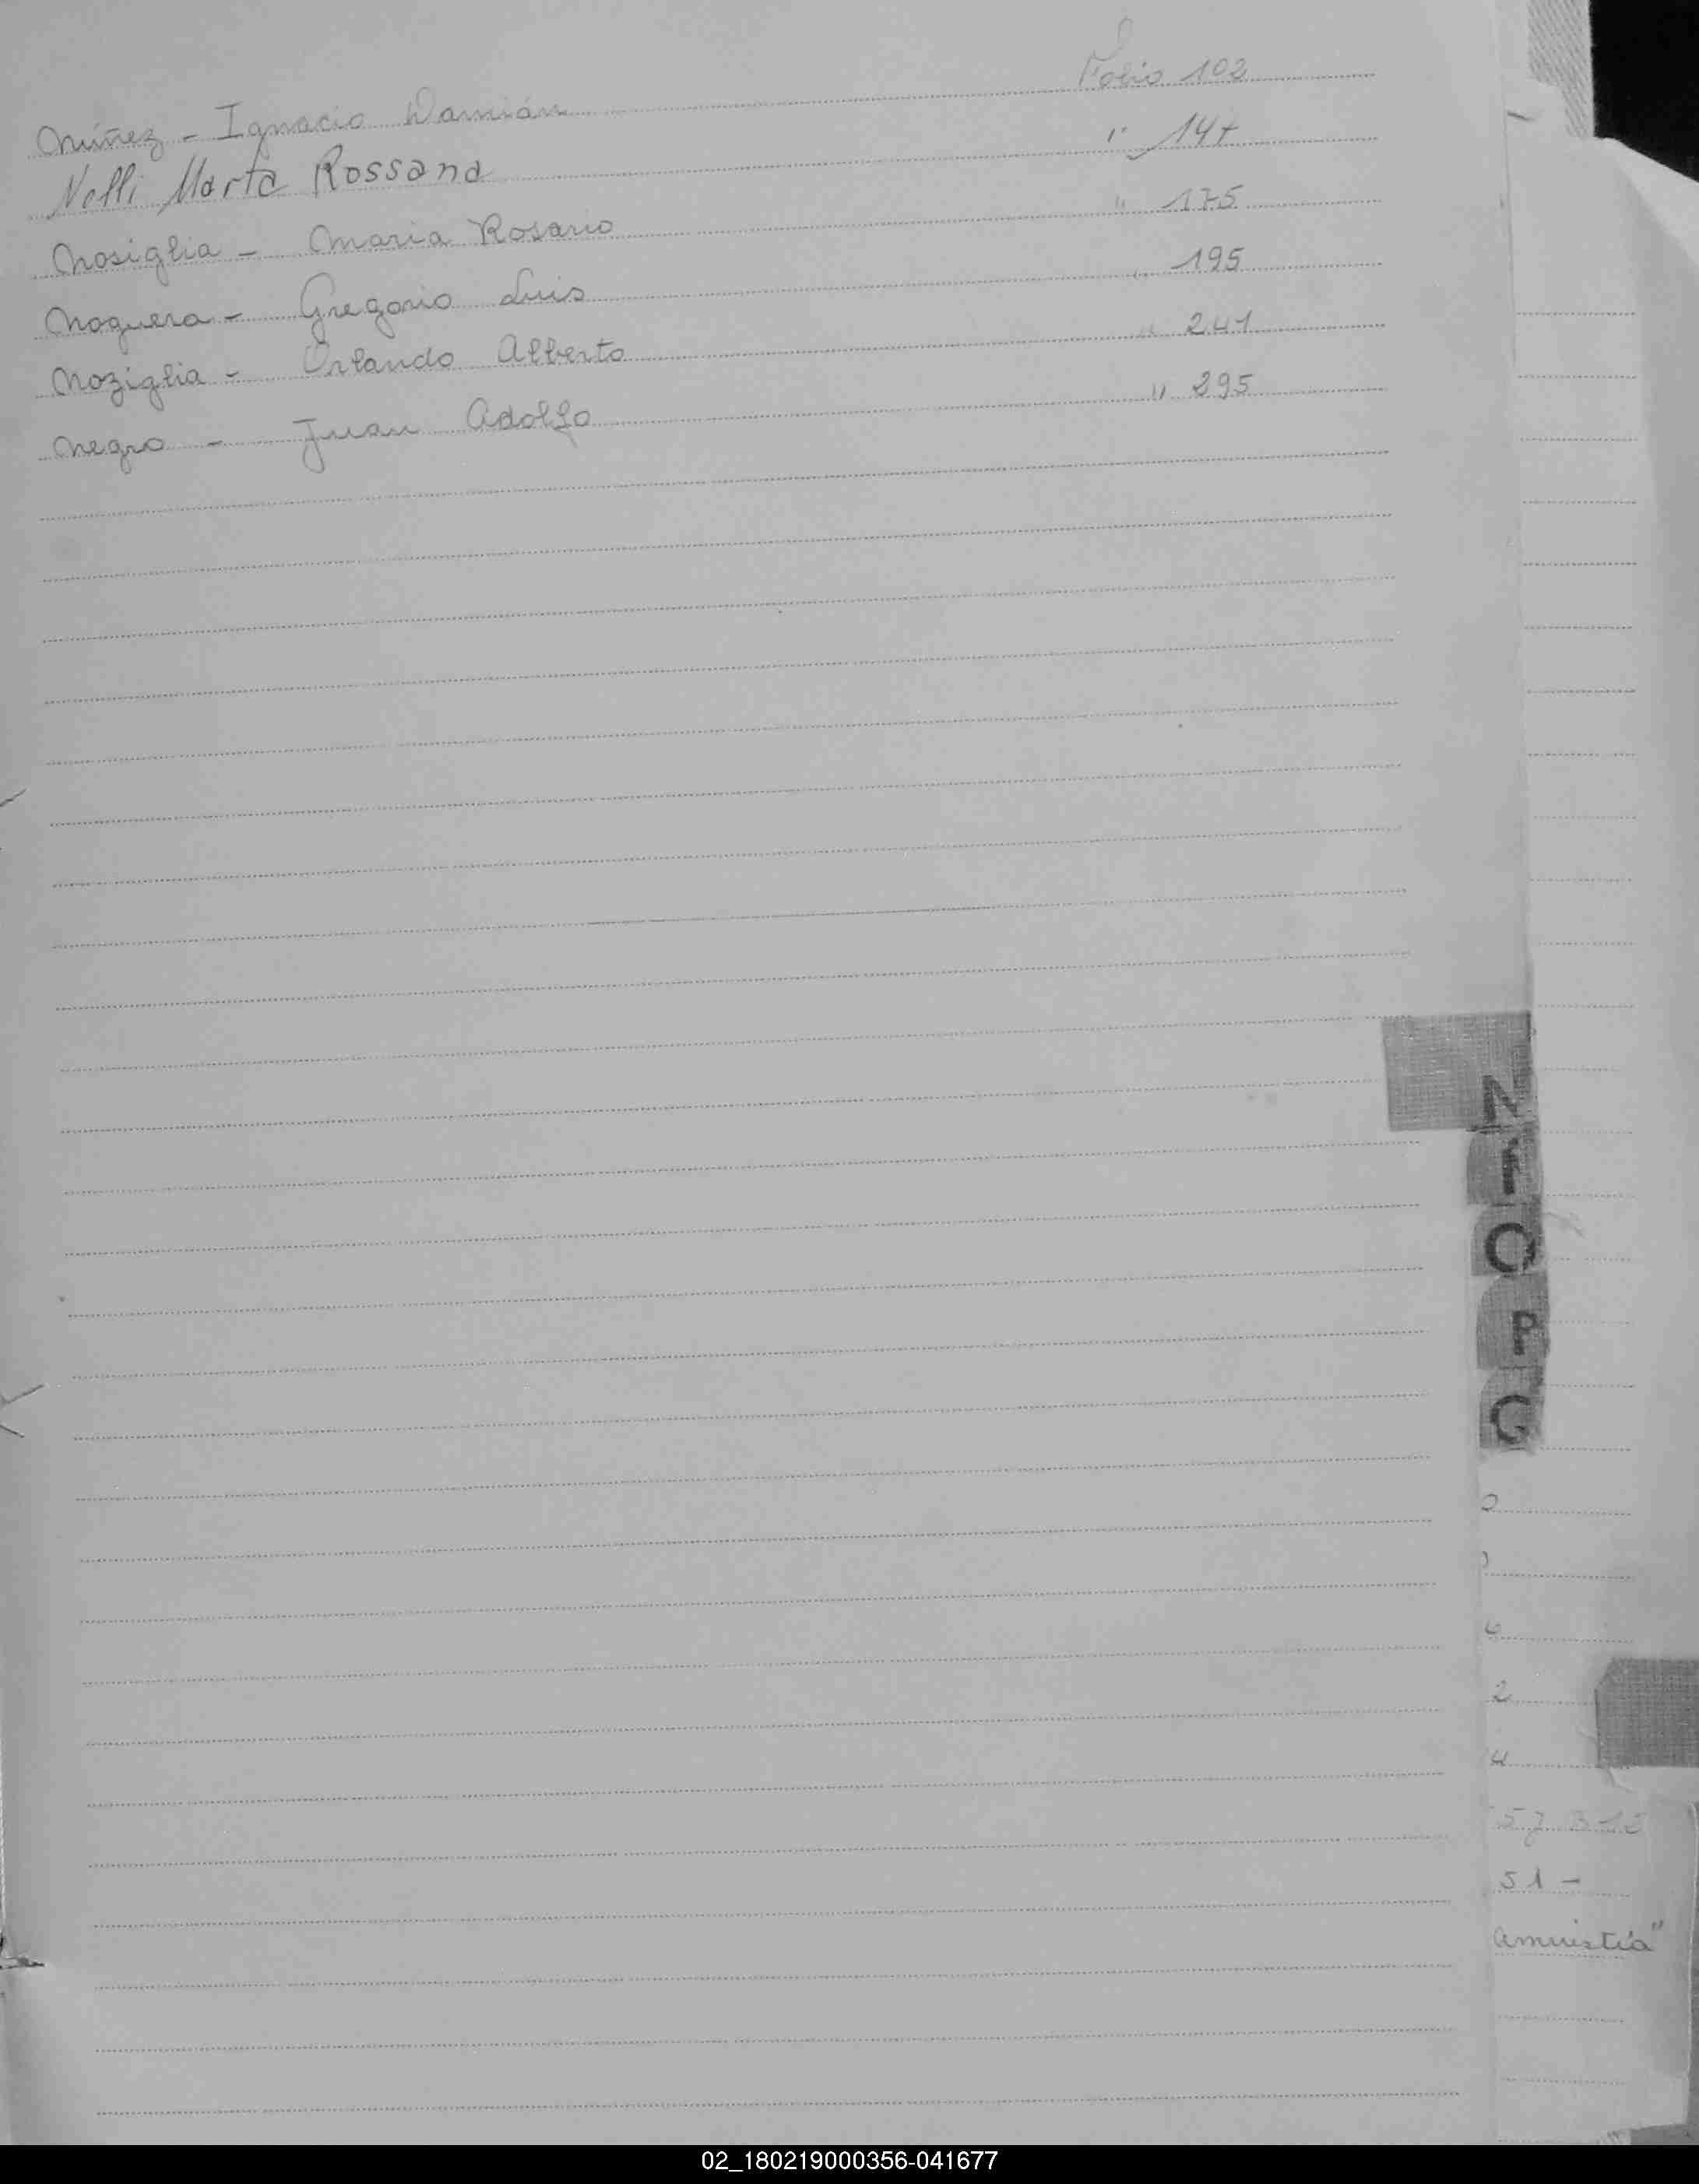 Núñez - Ignacio Damián Folio 102
Nelli Marta Rossana " 147
Nosiglia - Maria Rosario " 175
Noguera - Gregorio Luis " 195
Noziglia - Orlando Alberto " 241
Negro - Juan Adolfo " 295
N
O
P
2
4
51 -
Amnistía"
02_180219000356-041677